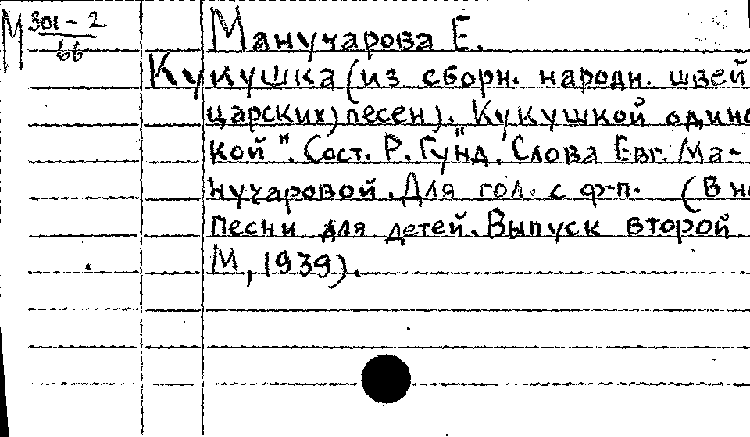 М 301-2
66
Манучарова Е.
Кукушка (из сборн. народн. швей
царских) песен). Кукушкой одино
кой". Сост. Р. Гунд. Слова Евг. Ма-
нучаровой. Для гол. с ф-п. (В н
песни для детей. Выпуск второй
М, 1939).